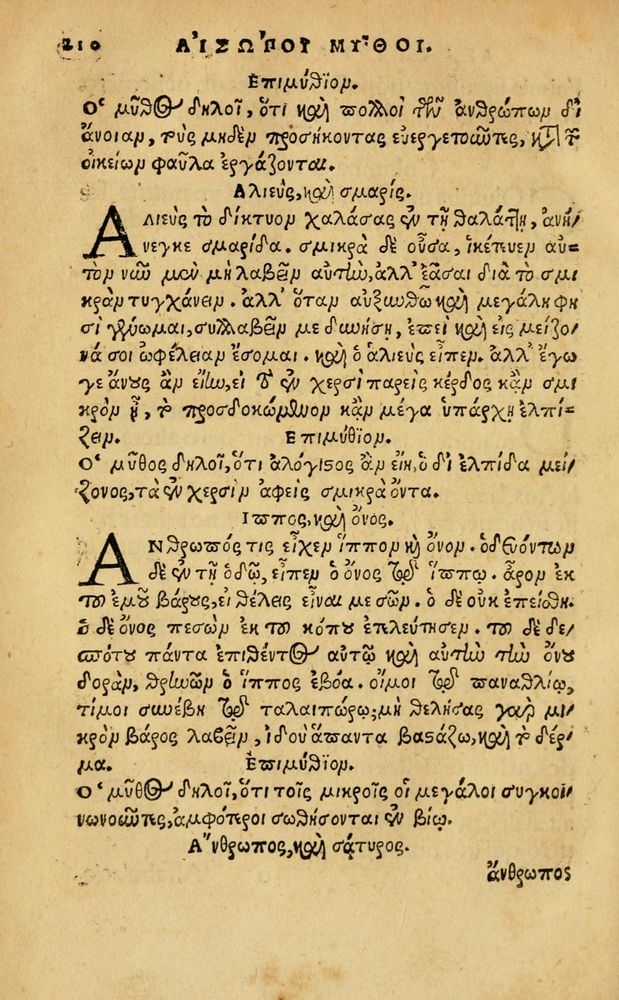 210 ΑἸΣΩΠΟΥ ΜΥ͂ΘΟΙ.
Επιμύθιον.
Ο῾ μῦθος δηλοῖ, ὅτι καὶ πολλοὶ τῶν ἀνθρώπων δι
άνοιαν, τοὺς μηδὲν προσήκοντας εὐεργετοῦντες, κατὰ τῶν
οἰκείων φαῦλα ἐργάζονται.
Αλιεὺς, καὶ σμαρίς.
ΑΛΙΕὺς τὸ δίκτυον χαλάσας ἐν τῇ θαλάττῃ, ἀνή/
νεγκε σμαρίδα. σμικρὰ δὲ οὖσα, ἱκέτευεν αὐ=
τὸν νῦν μὲν μὴ λαβεῖν αὐτὴν, ἀλλ' ἐᾶσαι διὰ τὸ σμι
κρὰν τυγχάνειν. ἀλλ' ὅταν αὐξηθῶ καὶ μεγάλη φη
σὶ γένωμαι, συλλαβεῖν με δυνήσῃ, ἐπεὶ καὶ εἰς μείζο/
νά σοι ὠφέλειαν ἔσομαι. καὶ ὁ ἁλιεὺς εἶπεν. ἀλλ' ἔγω
γε ἄνους ἂν εἴην, εἰ τὸ ἐν χερσὶ παρεὶς κέρδος κἂν σμι
κρὸν ᾖ, τὸ προσδοκώμενον κἂν μέγα ὑπάρχῃ ἐλπί=
ζειν. Επιμύθιον.
Ο῾ μῦθος δηλοῖ, ὅτι ἀλόγιστος ἂν εἴη, ὁ δι' ἐλπίδα μεί/
ζονος, τὰ ἐν χερσὶν ἀφεὶς σμικρὰ ὄντα.
Ιππος, καὶ ὄνος.
ΑΝθρωπός τις εἶχεν ἵππον καὶ ὄνον. ὁδευόντων
δὲ ἐν τῇ ὁδῷ, εἶπεν ὁ ὄνος τῷ ἵππῳ. ἆρον ἐκ
τοῦ ἐμοῦ βάρους, εἰ θέλεις εἶναί με σῶν. ὁ δὲ οὐκ ἐπείσθη.
ὁ δὲ ὄνος πεσὼν ἐκ τοῦ κόπου ἐτελεύτησεν. τοῦ δὲ δε/
σπότου πάντα ἐπιθέντος αὐτῷ καὶ αὐτὴν τὴν ὄνου
δορὰν, θρηνῶν ὁ ἵππος ἐβόα. οἴμοι τῷ παναθλίῳ,
τί μοι συνέβη τῷ ταλαιπώρῳ; μὴ θελήσας γὰρ μι/
κρὸν βάρος λαβεῖν, ἰδοὺ ἅπαντα βαστάζω, καὶ τὸ δέρ/
μα. Επιμύθιον.
Ο῾ μῦθος δηλοῖ, ὅτι τοῖς μικροῖς οἱ μεγάλοι συγκοι/
νωνοῦντες, ἀμφότεροι σωθήσονται ἐν βίῳ.
Α῎νθρωπος, καὶ σάτυρος.
ἄνθρωπος